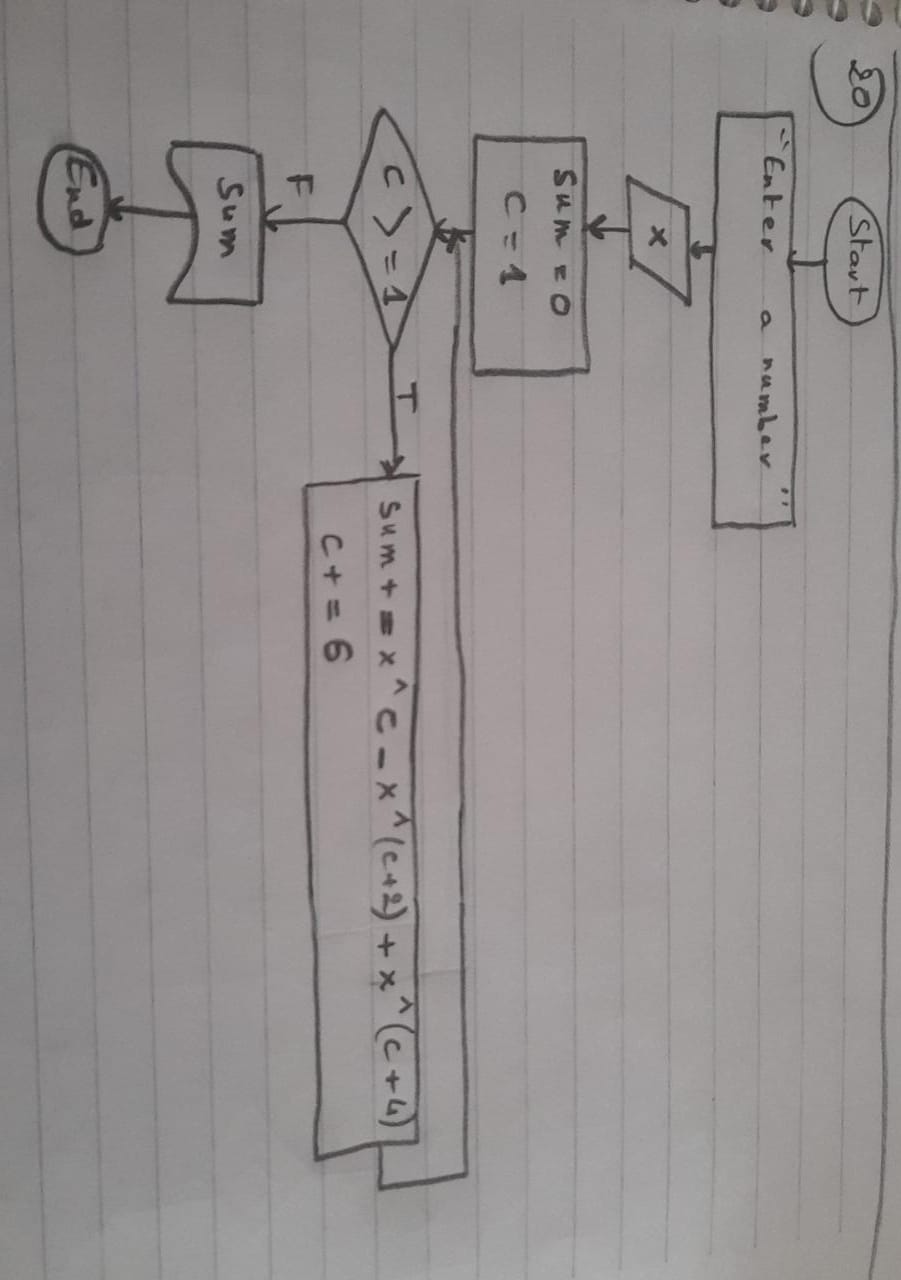 20
Start
"Enter a number"
x
Sum = 0
C = 1
C > = 1
T
Sum + = x ^ C - x ^ (C+2) + x ^ (C+4)
C + = 6
F
Sum
End